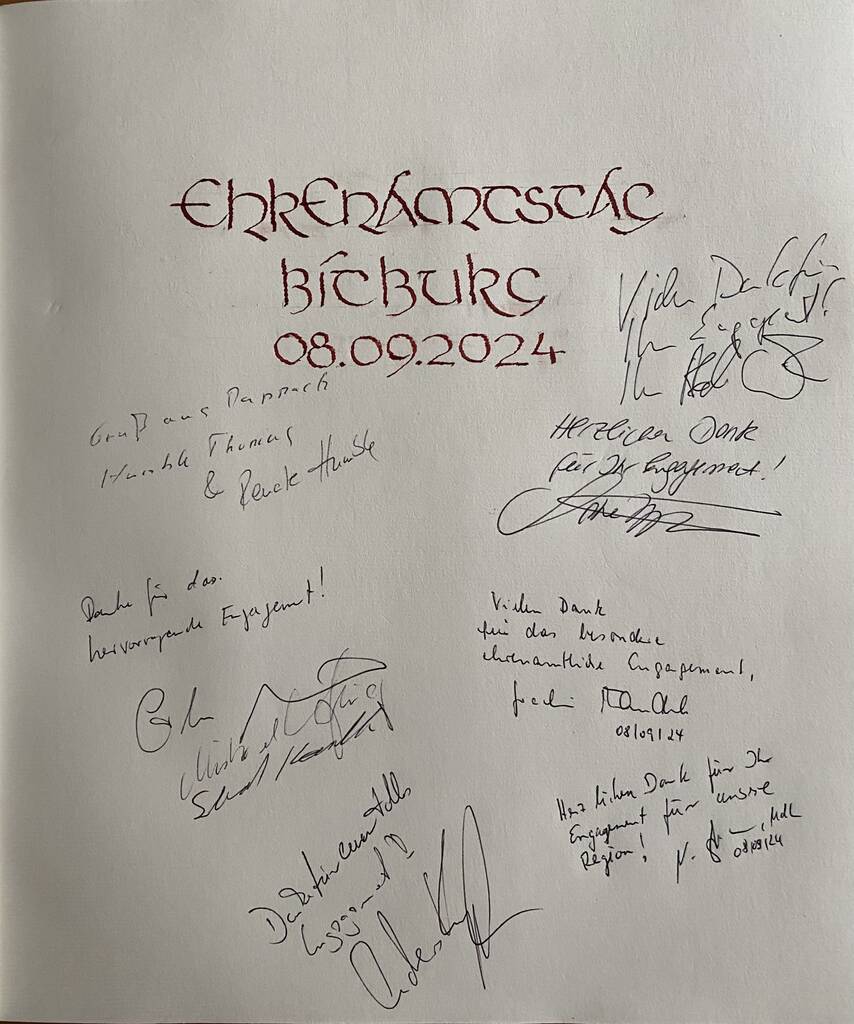 EHRENAMTSTAG
BITBURG
08.09.2024
Vielen Dank für
Ihr Engagement!
Ihr
Gruß aus
Thomas
&
Herzlichen Dank
für Ihr Engagement!
Danke für das
hervorragende Engagement!
Vielen Dank
für das besondere
ehrenamtliche Engagement,
Joachim
08/09/24
Michael
Herzlichen Dank für Ihr
Engagement für unsere
Region!
MdL
08/09/24
Danke für euer tolles
Engagement!